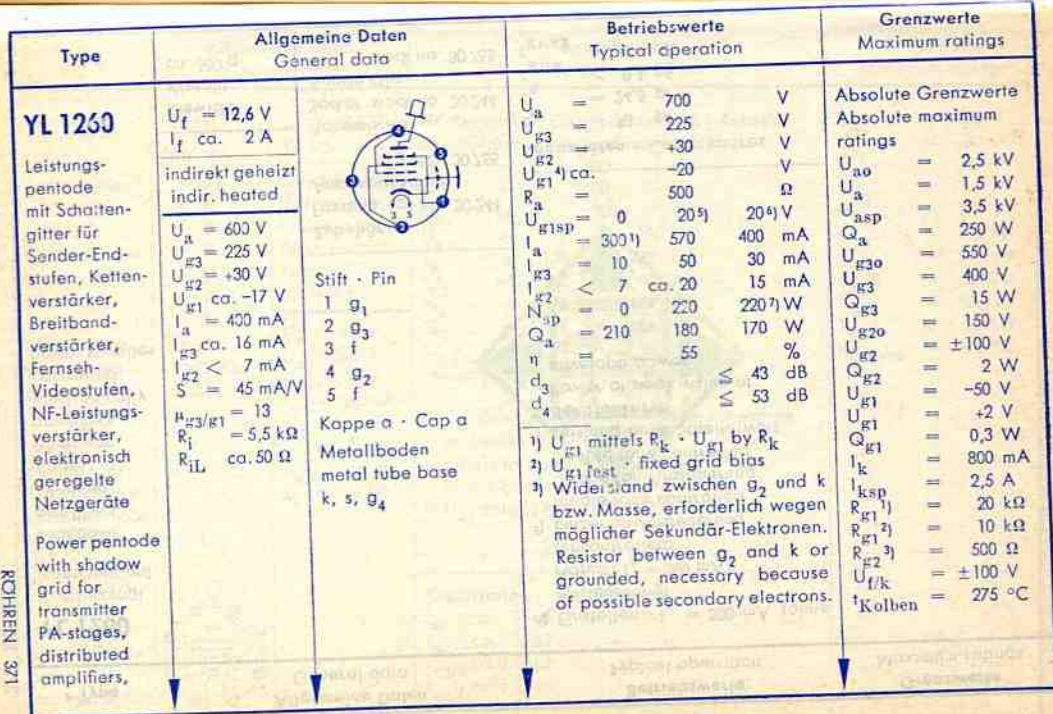 Type
Allgemeine Daten
General data
Betriebswerte
Typical operation
Grenzwerte
Maximum ratings
YL 1260
Leistungs-
pentode
mit Schatten-
gitter für
Sender-End-
stufen, Ketten-
verstärker,
Breitband-
verstärker,
Fernseh-
Videostufen,
NF-Leistungs-
verstärker,
elektronisch
geregelte
Netzgeräte
Power pentode
with shadow
grid for
transmitter
PA-stages,
distributed
amplifiers,
Uf = 12,6 V
If ca. 2 A
indirekt geheizt
indir. heated
Ua = 600 V
Ug3 = 225 V
Ug2 = +30 V
Ug1 ca. -17 V
Ia = 400 mA
Ig3 ca. 16 mA
Ig2 < 7 mA
S = 45 mA/V
μg3/g1 = 13
Ri = 5,5 kΩ
RiL ca. 50 Ω
3 5
Stift · Pin
1 g1
2 g3
3 f
4 g2
5 f
Kappe a · Cap a
Metallboden
metal tube base
k, s, g4
Ua = 700 V
Ug3 = 225 V
Ug2 = +30 V
Ug1 4) ca. -20 V
Ra = 500 Ω
Ug1sp = 0 20 5) 20 6) V
Ia = 300 1) 570 400 mA
Ig3 = 10 50 30 mA
Ig2 < 7 ca. 20 15 mA
Nsp = 0 220 220 7) W
Qa = 210 180 170 W
η = 55 %
d3 ≦ 43 dB
d4 ≦ 53 dB
1) Ug1 mittels Rk · Ug1 by Rk
2) Ug1 fest · fixed grid bias
3) Widerstand zwischen g2 und k
bzw. Masse, erforderlich wegen
möglicher Sekundär-Elektronen.
Resistor between g2 and k or
grounded, necessary because
of possible secondary electrons.
Absolute Grenzwerte
Absolute maximum
ratings
Uao = 2,5 kV
Ua = 1,5 kV
Uasp = 3,5 kV
Qa = 250 W
Ug3o = 550 V
Ug3 = 400 V
Qg3 = 15 W
Ug2o = 150 V
Ug2 = ±100 V
Qg2 = 2 W
Ug1 = -50 V
Ug1 = +2 V
Qg1 = 0,3 W
Ik = 800 mA
Iksp = 2,5 A
Rg1 1) = 20 kΩ
Rg1 2) = 10 kΩ
Rg2 3) = 500 Ω
Uf/k = ±100 V
tKolben = 275 °C
RÖHREN 3/71